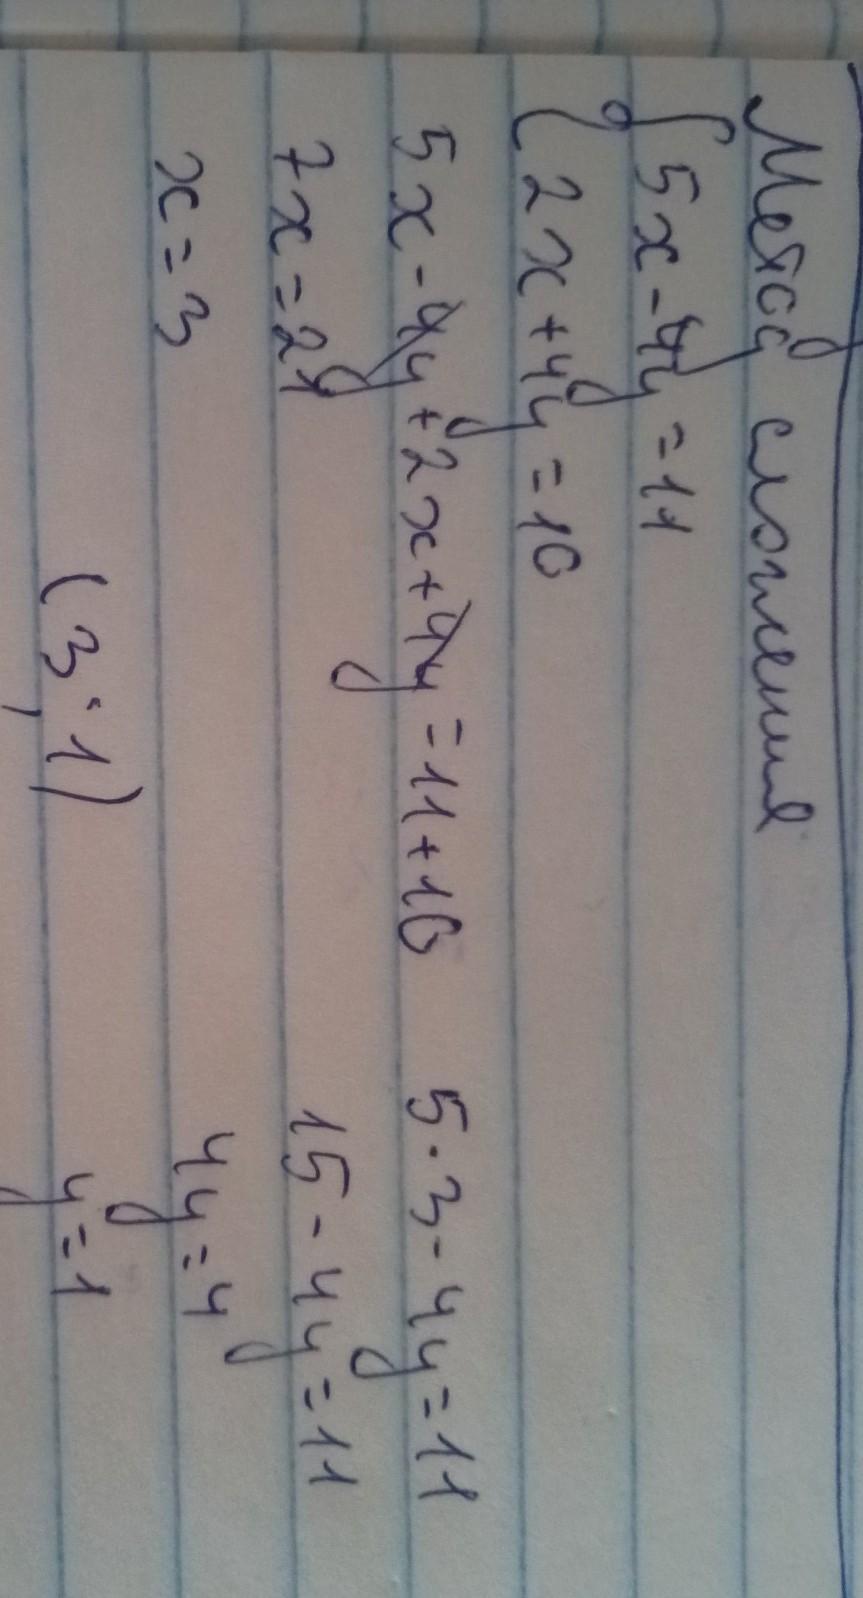 Метод сложения
{ 5x-4y=11
2x+4y=10
5x-4y+2x+4y=11+10
7x=21
x=3
5·3-4y=11
15-4y=11
4y=4
y=1
(3;1)